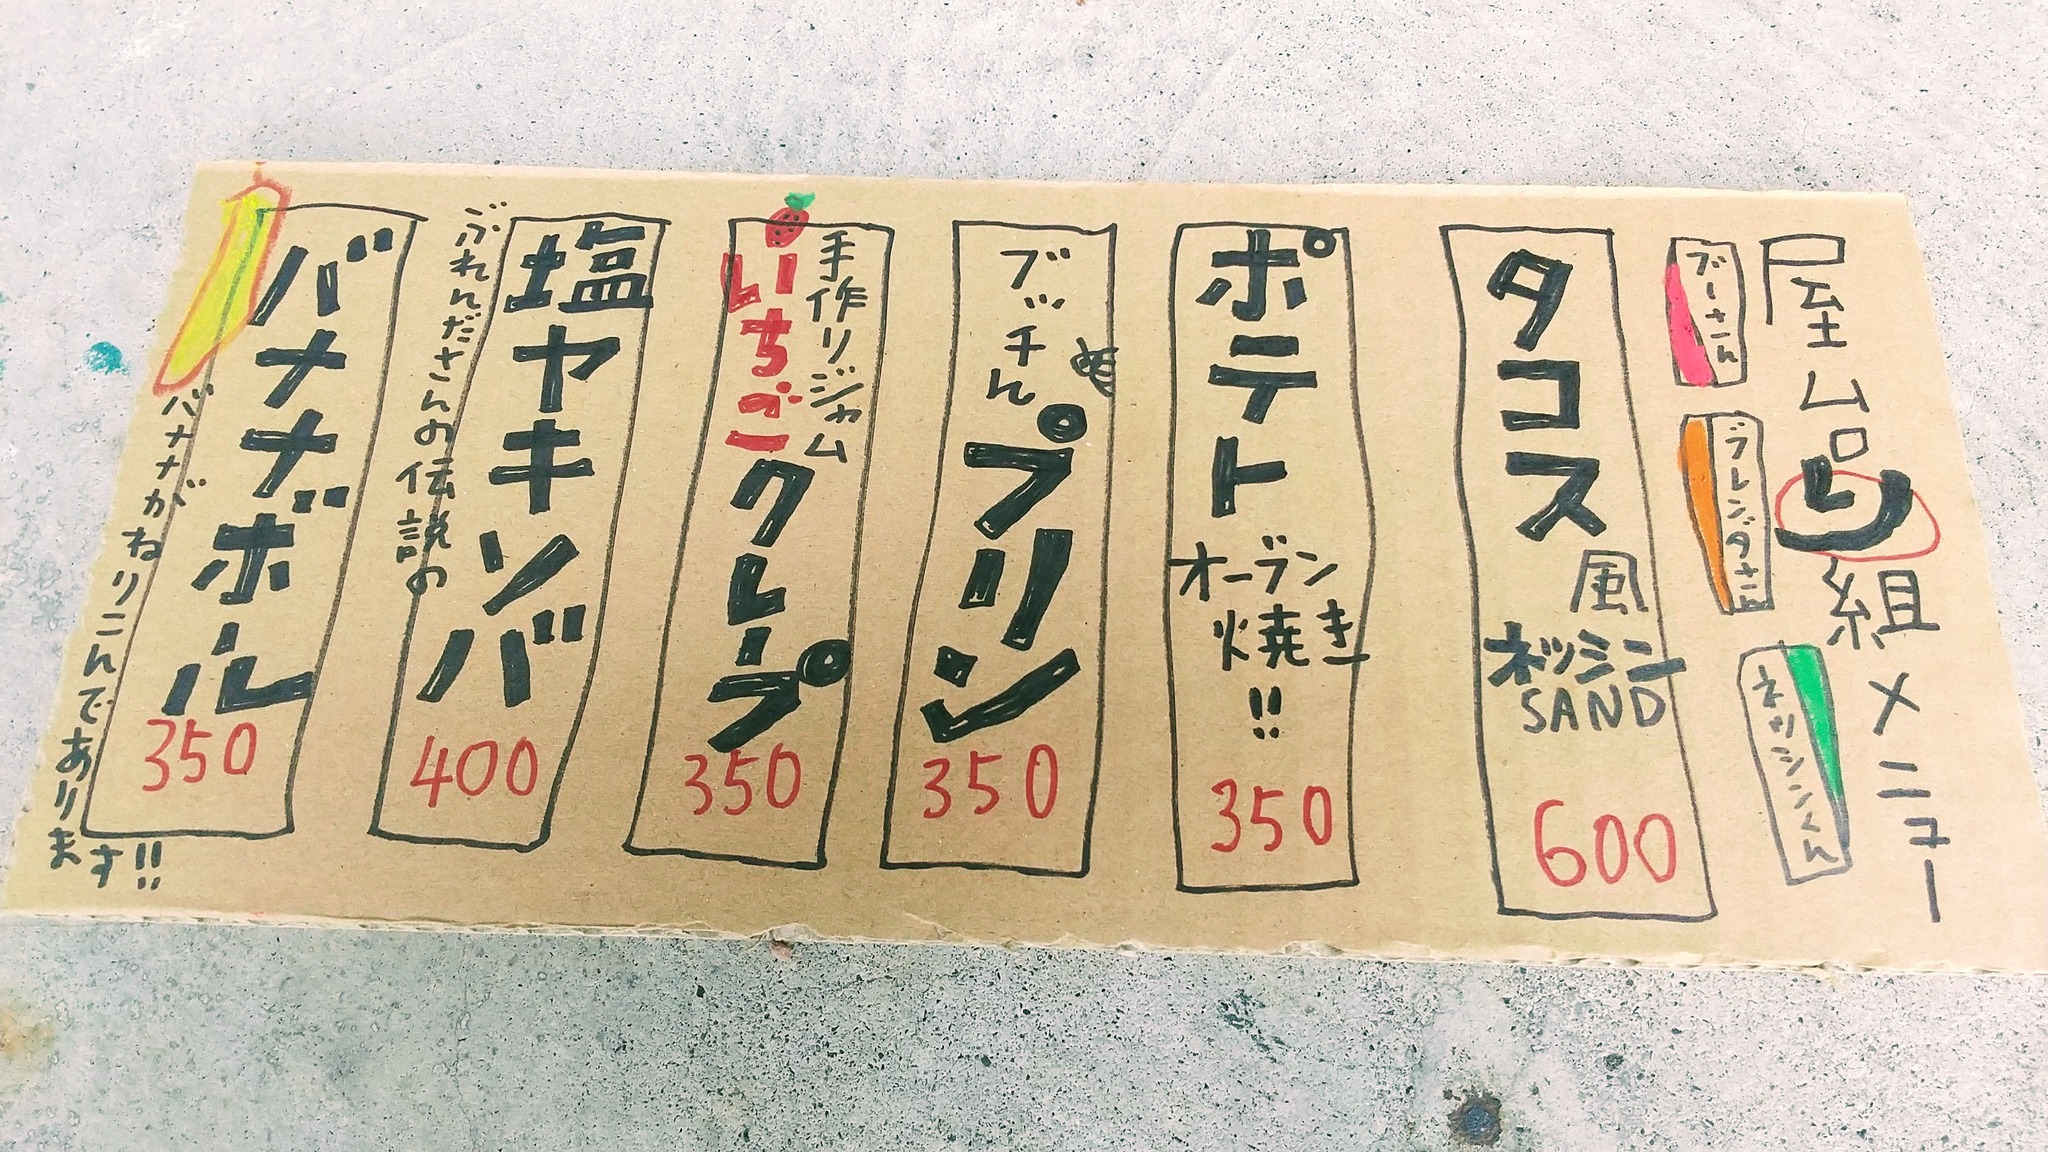 屋台
組メニュー
ブーさん
ブレンダさん
ネッシンくん
タコス
風
ネッシン
SAND
600
ポテト
オーブン
焼き
!!
350
プッチん
プリン
350
手作りジャム
いちご
クレープ
350
塩ヤキソバ
ぶれんださんの伝説の
400
バナナボール
350
バナナがねりこんであります!!